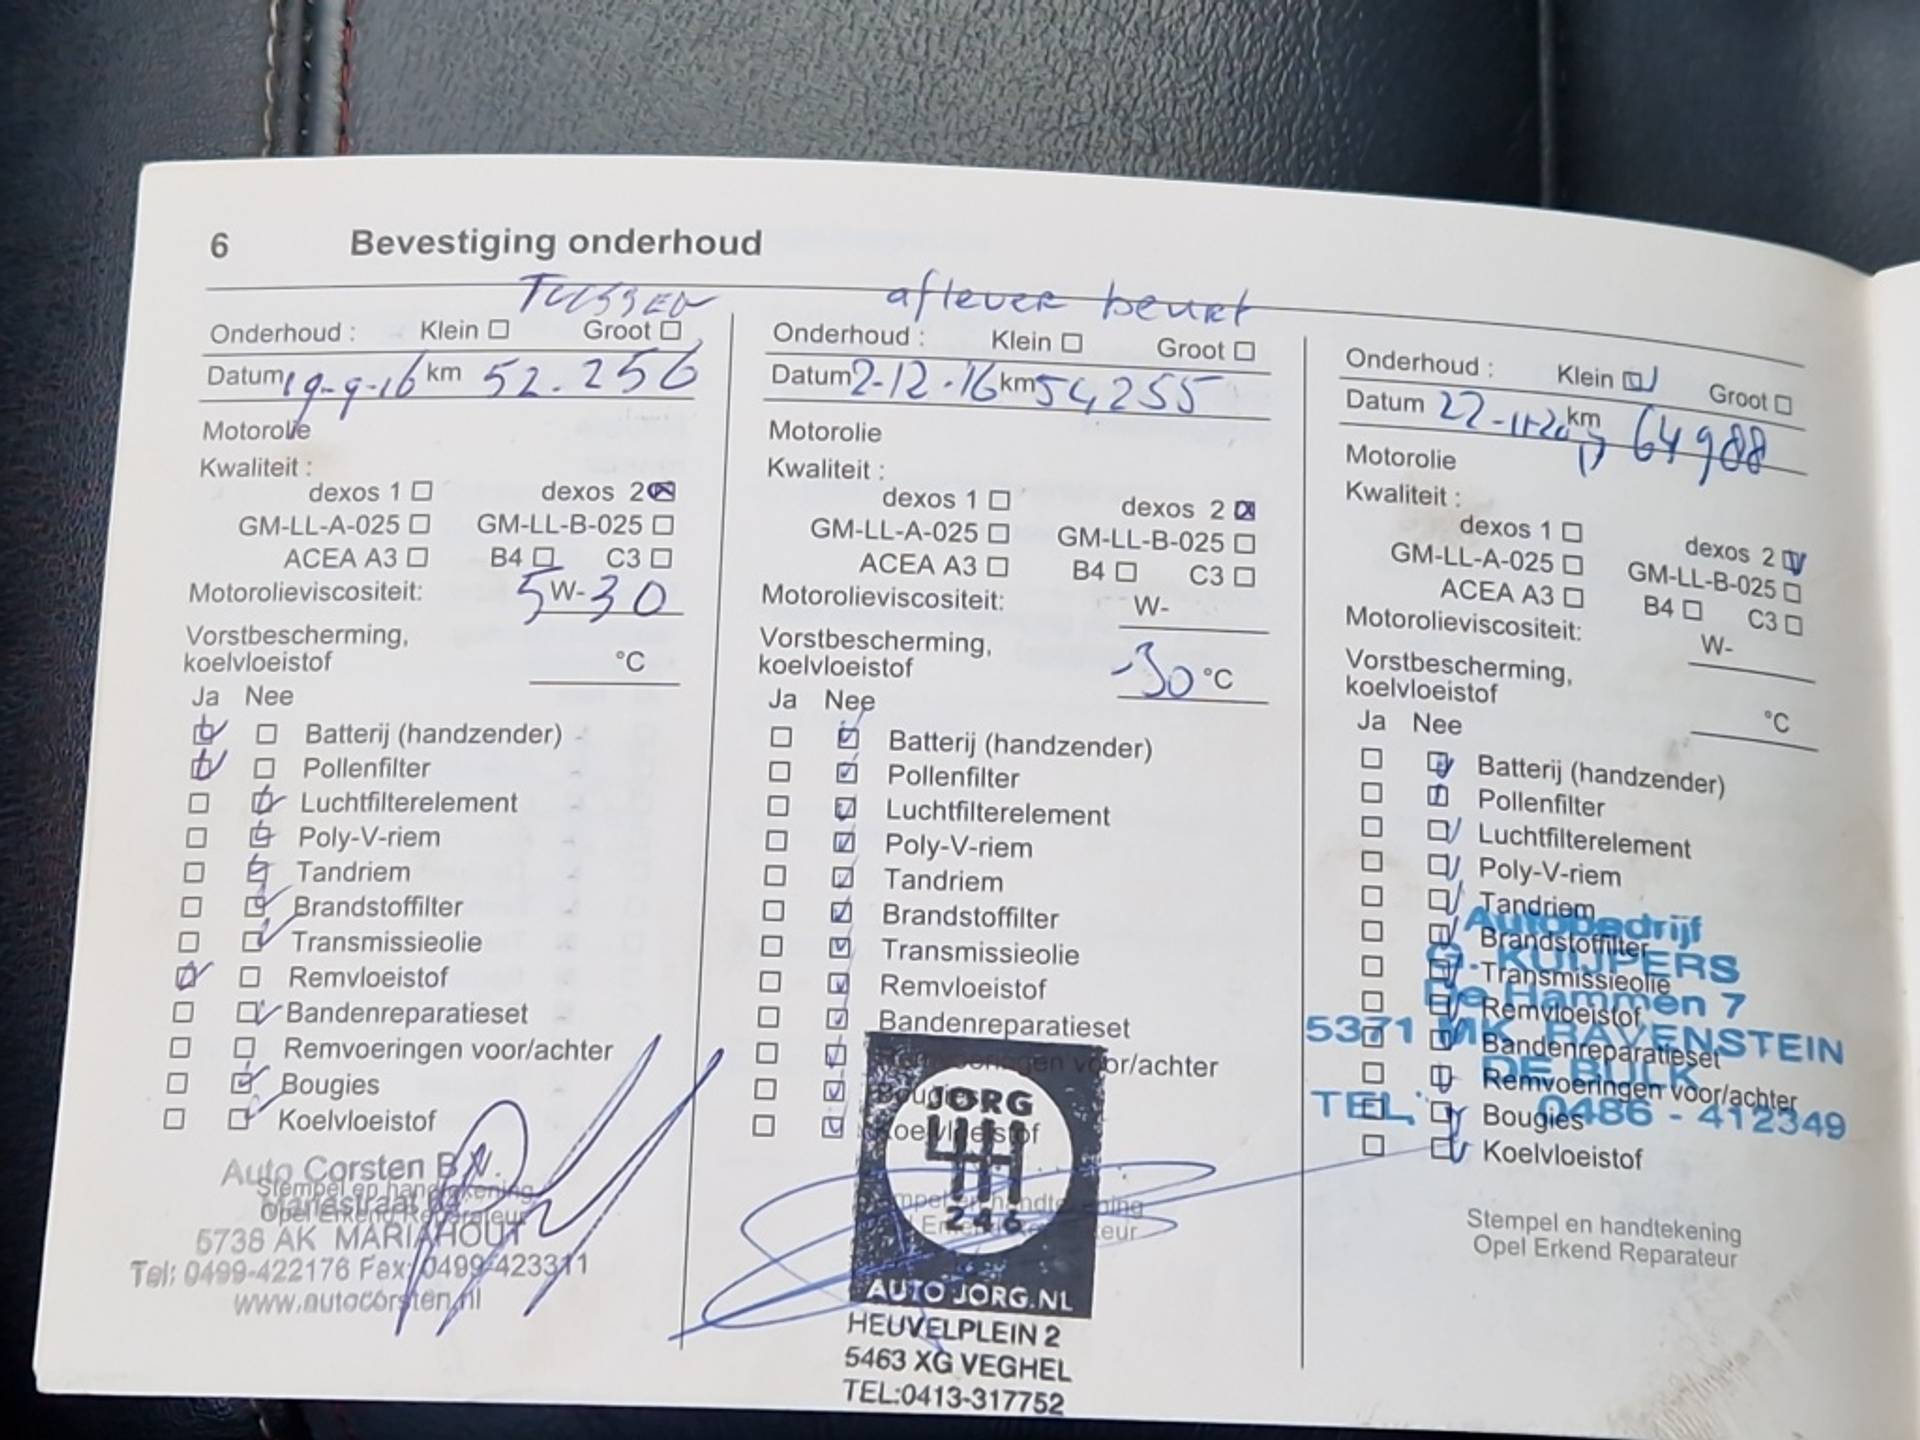 6 Bevestiging onderhoud
TUSSEN
Onderhoud : Klein Groot
Datum 19-9-16 km 52.256
Motorolie
Kwaliteit :
dexos 1 dexos 2
GM-LL-A-025 GM-LL-B-025
ACEA A3 B4 C3
Motorolieviscositeit: 5 W- 30
Vorstbescherming,
koelvloeistof °C
Ja Nee
Batterij (handzender)
Pollenfilter
Luchtfilterelement
Poly-V-riem
Tandriem
Brandstoffilter
Transmissieolie
Remvloeistof
Bandenreparatieset
Remvoeringen voor/achter
Bougies
Koelvloeistof
Auto Corsten B.V.
Stempel en handtekening
Mariastraat
Opel Erkend Reparateur
5738 AK MARIAHOUT
Tel: 0499-422176 Fax: 0499-423311
www.autocorsten.nl
aflever beurt
Onderhoud : Klein Groot
Datum 2-12-16 km 54255
Motorolie
Kwaliteit :
dexos 1 dexos 2
GM-LL-A-025 GM-LL-B-025
ACEA A3 B4 C3
Motorolieviscositeit: W-
Vorstbescherming,
koelvloeistof -30 °C
Ja Nee
Batterij (handzender)
Pollenfilter
Luchtfilterelement
Poly-V-riem
Tandriem
Brandstoffilter
Transmissieolie
Remvloeistof
Bandenreparatieset
Remvoeringen voor/achter
Bougies
Koelvloeistof
JORG
246
AUTO JORG.NL
HEUVELPLEIN 2
5463 XG VEGHEL
TEL:0413-317752
Onderhoud : Klein Groot
Datum 22-11-2017 km 64988
Motorolie
Kwaliteit :
dexos 1 dexos 2
GM-LL-A-025 GM-LL-B-025
ACEA A3 B4 C3
Motorolieviscositeit: W-
Vorstbescherming,
koelvloeistof °C
Ja Nee
Batterij (handzender)
Pollenfilter
Luchtfilterelement
Poly-V-riem
Tandriem
Brandstoffilter
Transmissieolie
Remvloeistof
Bandenreparatieset
Remvoeringen voor/achter
Bougies
Koelvloeistof
Autobedrijf
G. KUIJPERS
De Hammen 7
5371 MK RAVENSTEIN
DE BULK
TEL. 0486 - 412349
Stempel en handtekening
Opel Erkend Reparateur